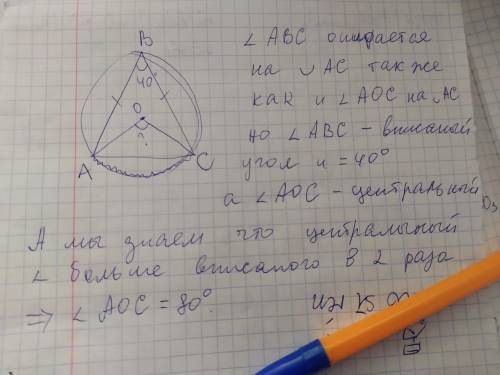 B
40°
O
?
A
C
∠ ABC опирается
на ◡ AC также
как и ∠ AOC на ◡ AC
но ∠ ABC – вписаный
угол и = 40°
а ∠ AOC – центральный
А мы знаем что центральный
∠ больше вписаного в 2 раза
⇒ ∠ AOC = 80°.